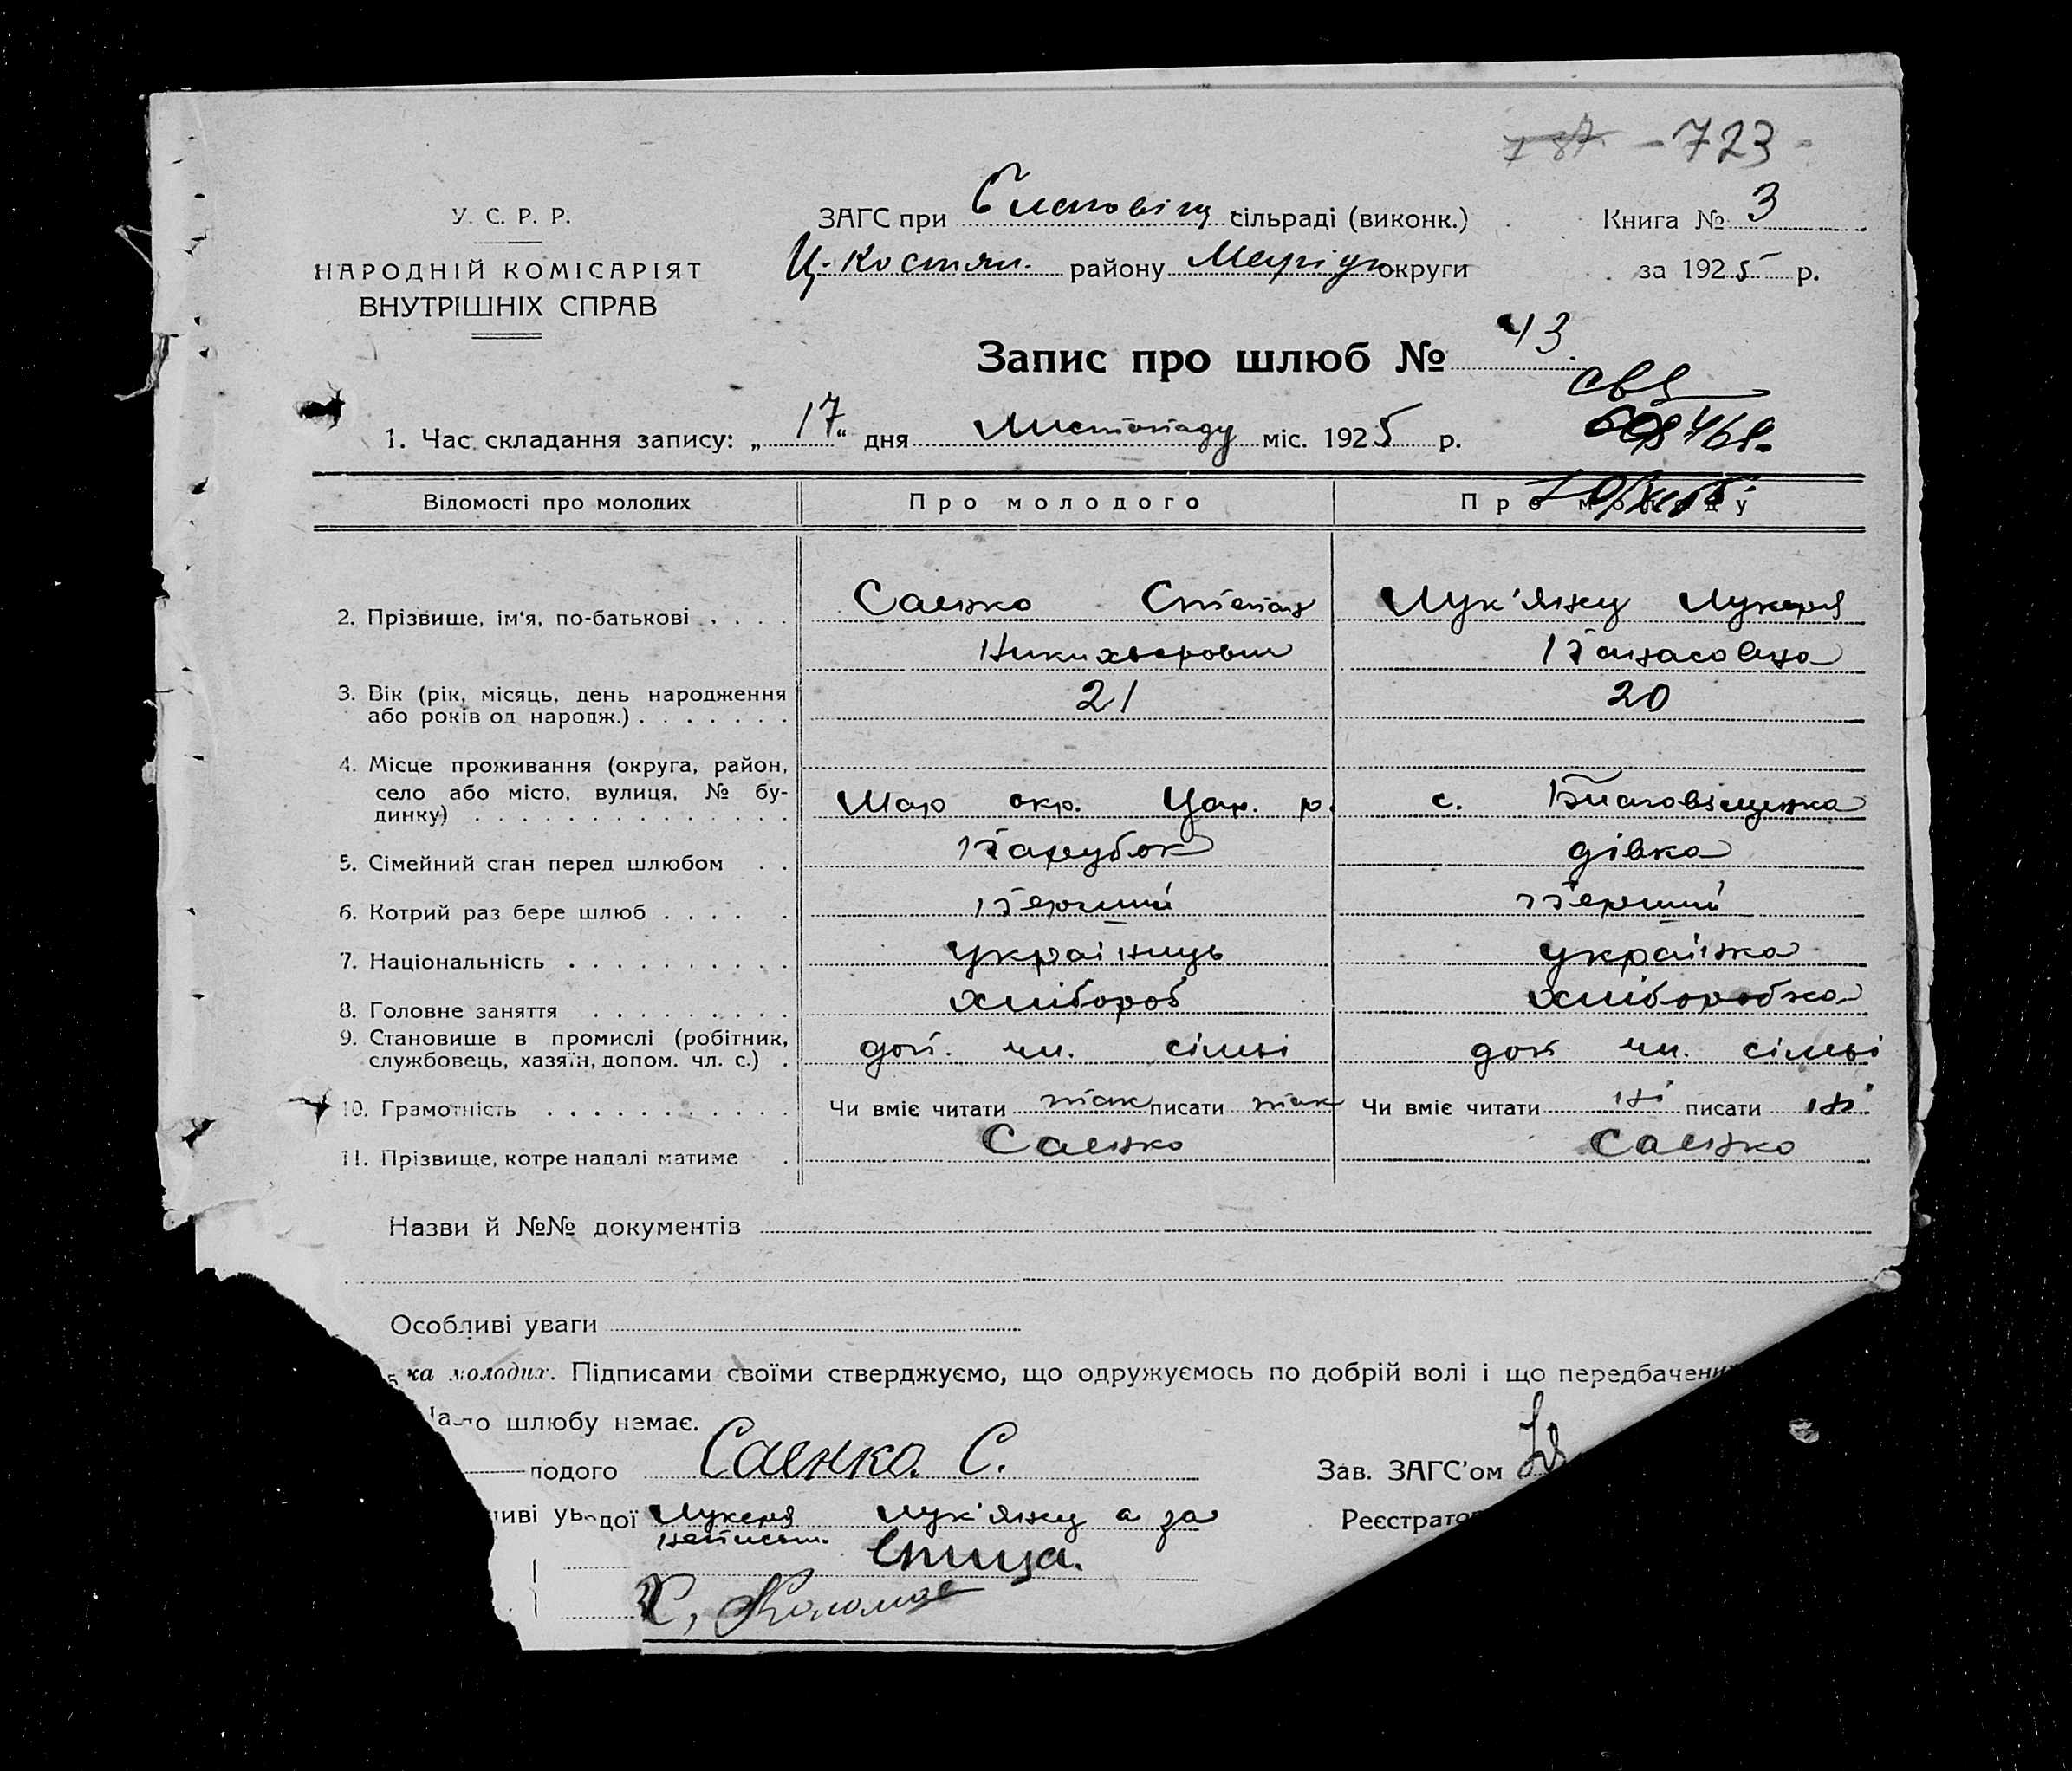 187 - 723 -
У. С. Р. Р.
НАРОДНІЙ КОМІСАРІЯТ
ВНУТРІШНІХ СПРАВ
ЗАГС при сільраді (виконк.)
Ц. Костян. району округи
Книга № 3
за 1925 р.
Запис про шлюб № 43.
1. Час складання запису: „17“ дня Листопаду міс. 1925 р.
Відомості про молодих Про молодого Про молоду
2. Прізвище, ім‘я, по-батькові . . . . Саєнко Степан Лук'янц Лукеря
Никихворович Панасовна
3. Вік (рік, місяць, день народження 21 20
або років од народж.) . . . . . . .
4. Місце проживання (округа, район,
село або місто, вулиця, № бу- Мар окр. Цар. р. с. Благовіщенка
динку) . . . . . . . . . . . . . .
5. Сімейний стан перед шлюбом . . Парубок дівка
6. Котрий раз бере шлюб . . . . . Перший Перший
7. Національність . . . . . . . . . . українць українка
8. Головне заняття . . . . . . . . . хлібороб хліборобка
9. Становище в промислі (робітник, доп. чл. сімьі доп чл. сімьі
службовець, хазяїн, допом. чл. с.) .
10. Грамотність . . . . . . . . . . . Чи вміє читати так писати так Чи вміє читати ні писати ні
11. Прізвище, котре надалі матиме . Саєнко Саєнко
Назви й №№ документів
Особливі уваги
ка молодих. Підписами своїми стверджуємо, що одружуємось по добрій волі і що передбачени
о шлюбу немає.
лодого Саєнко. С. Зав. ЗАГС'ом
ливі ув дої Лукеря Лук'янц а за Реєстрато
неписьм.